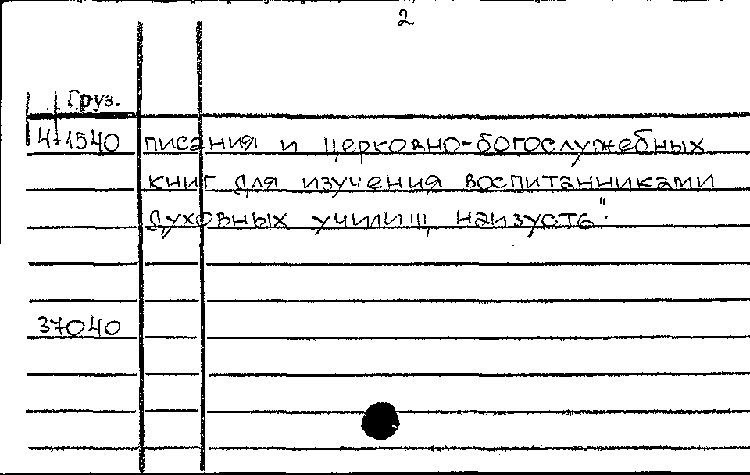 2
Груз.
41540 писания и церковно-богослужебных
книг для изучения воспитанниками
духовных училищ наизусть".
37040